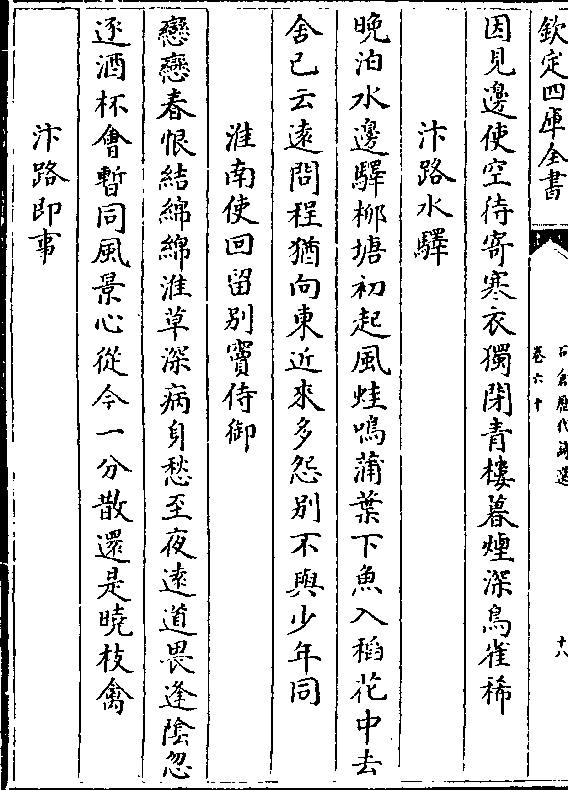 欽定四庫全書
石倉歷代詩選
卷六十
十八
因見邊使空待寄寒衣獨閉青樓暮煙深鳥雀稀
汴路水驛
晚泊水邊驛柳塘初起風蛙鳴蒲葉下魚入稻花中去
舍已云遠問程猶向東近來多怨别不與少年同
淮南使回留别竇侍御
戀戀春恨結綿綿淮草深病身愁至夜遠道畏逢陰忽
逐酒杯會暫同風景心從今一分散還是曉枝禽
汴路即事